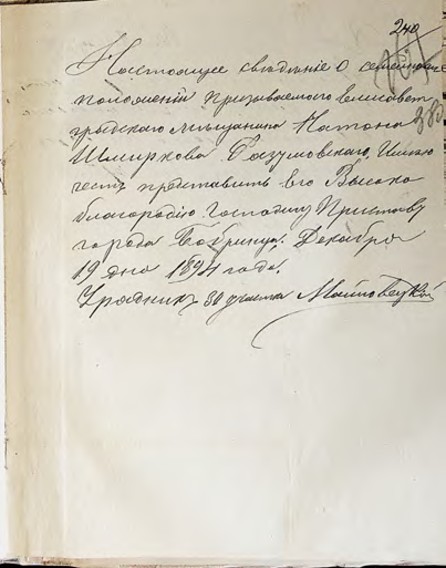 240
Настоящее свѣдѣніе о семейном
положеніи призываемого Елисавет
градскаго мѣщанина Натона
Шмиркова Разумовскаго, Имѣю
честь представить Его Высоко
благородію Господину Приставу
города Бобринца. Декабря
19 дня 1894 года.
Урядник 30 участка